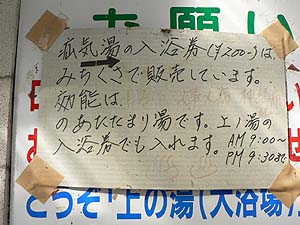 お願い
疝気湯の入浴券(¥200-)は、
みちくさで販売しています。
効能は、
のあたたまり湯です。上ノ湯の
入浴券でも入れます。AM 9:00〜
PM 9:30まで
どうぞ「上の湯(大浴場)